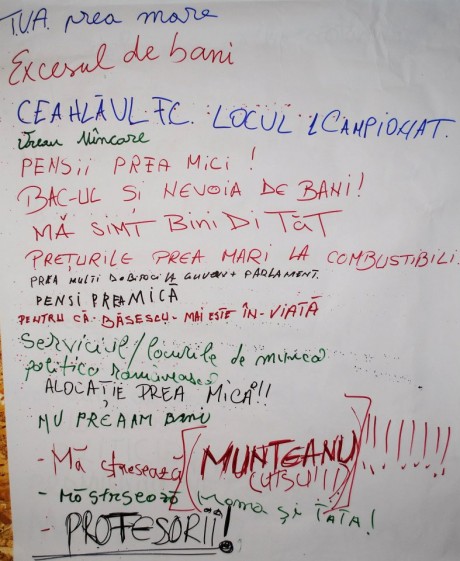 T.V.A. prea mare
Excesul de bani
CEAHLĂUL FC. LOCUL 1 CAMPIONAT.
Vreau Mîncare
PENSII PREA MICI !
BAC-UL ȘI NEVOIA DE BANI!
MĂ SIMT Bini Di TĂT
PREȚURILE PREA MARI LA COMBUSTIBILI
PREA MULTI DOBITOCI IN GUVERN + PARLAMENT.
PENSI PREA MICĂ
PENTRU CĂ - BĂSESCU - MAI ESTE ÎN - VIATĂ
Serviciul/locurile de munca
politica românească
ALOCAȚIE PREA MICĂ!!
NU PREA AM BANI
- Mă stresează MUNTEANU !!!!!!!!
(CUȚSU!!)
- Mă stresează Mama și TATA!
- PROFESORII!